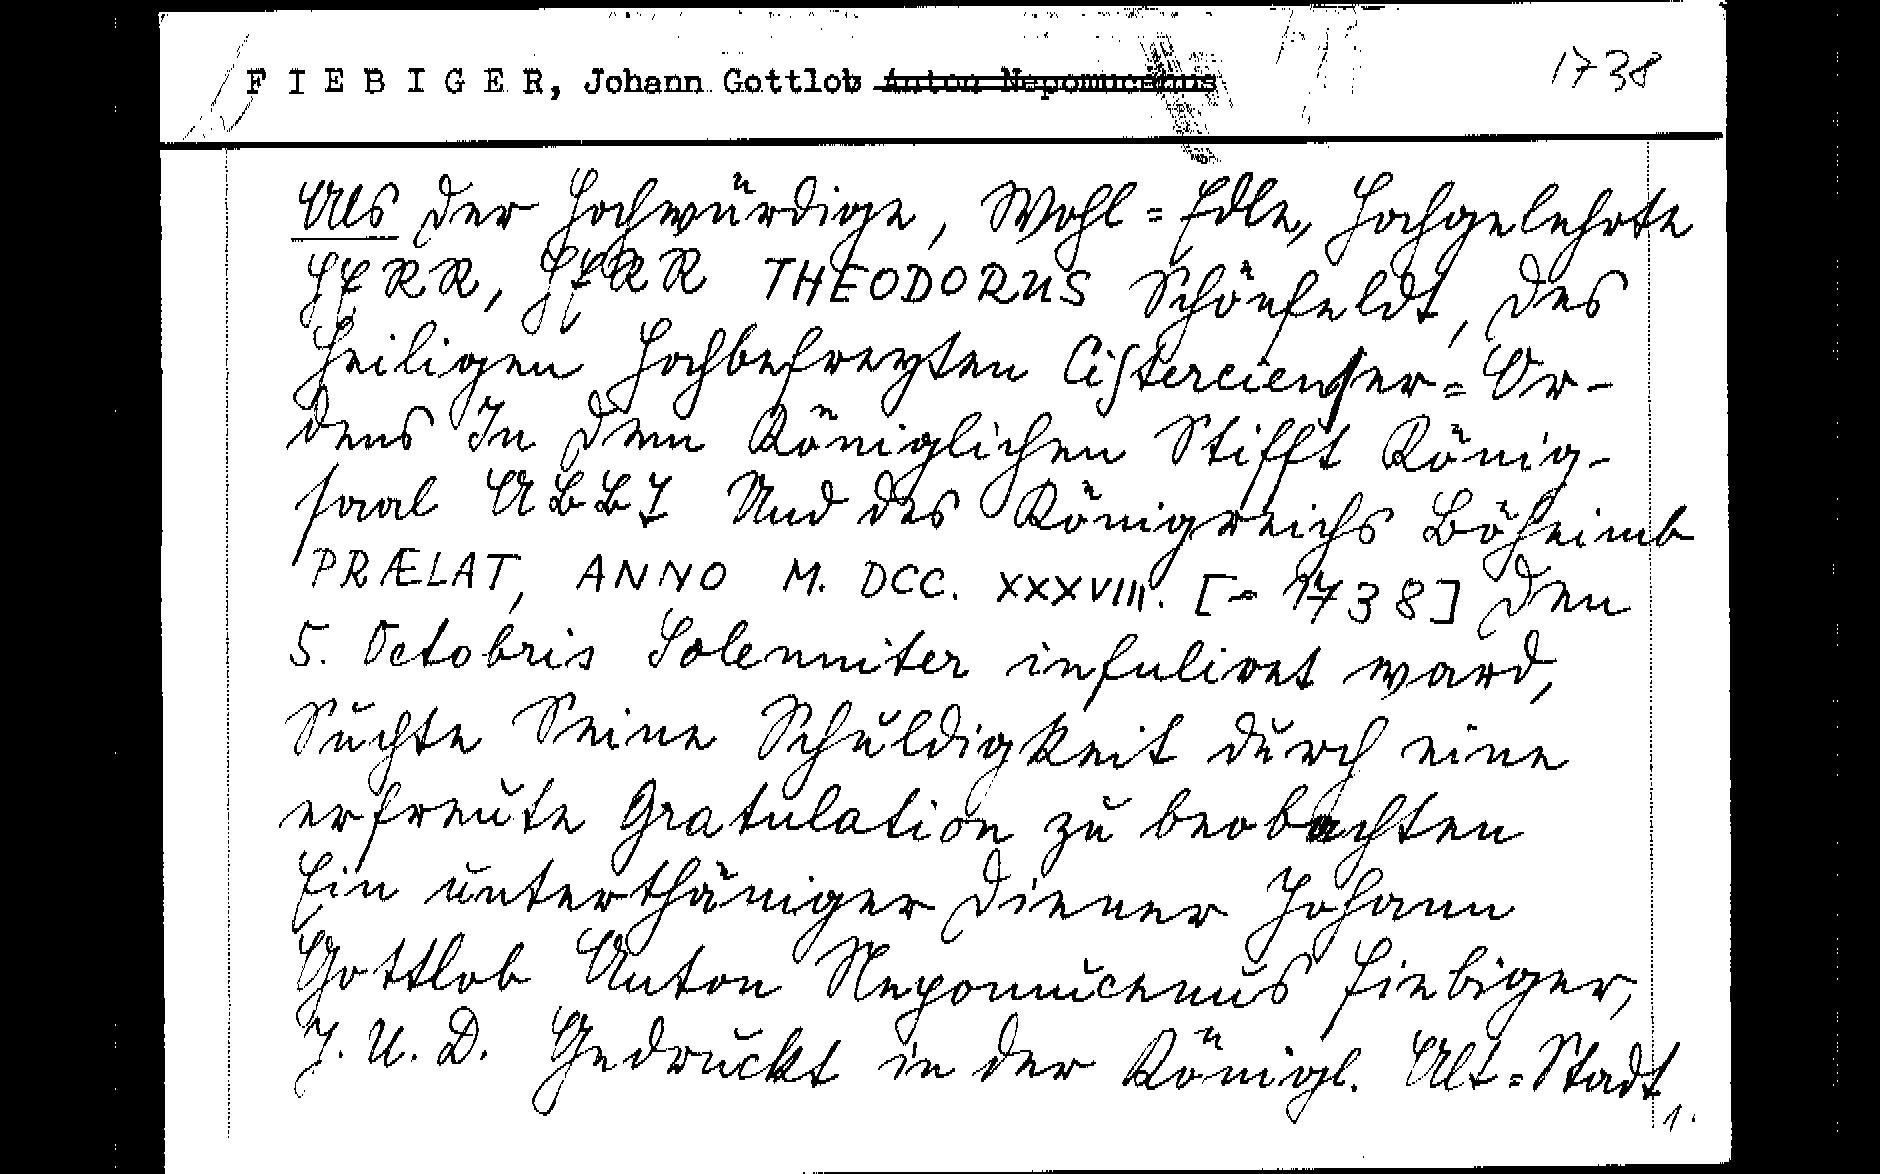 F I E B I G E R, Johann Gottlob Anton Nepomucenus 1738
Als der Hochwürdige, Wohl=Edle, Hochgelehrte
HERR, HERR THEODORUS Schönfeldt, des
Heiligen Hochbefreyten Cistercienser=Or-
dens In dem Königlichen Stifft König-
saal ABBT Und des Königreichs Böheimb
PRÆLAT, ANNO M. DCC. XXXVIII. [= 1738] den
5. Octobris Solenniter infuliret ward,
Suchte Seine Schuldigkeit durch eine
erfreute Gratulation zu beobachten
Ein unterthäniger Diener Johann
Gottlob Anton Nepomucenus Fiebiger,
J. U. D. Gedruckt in der Königl. Alt=Stadt
1.